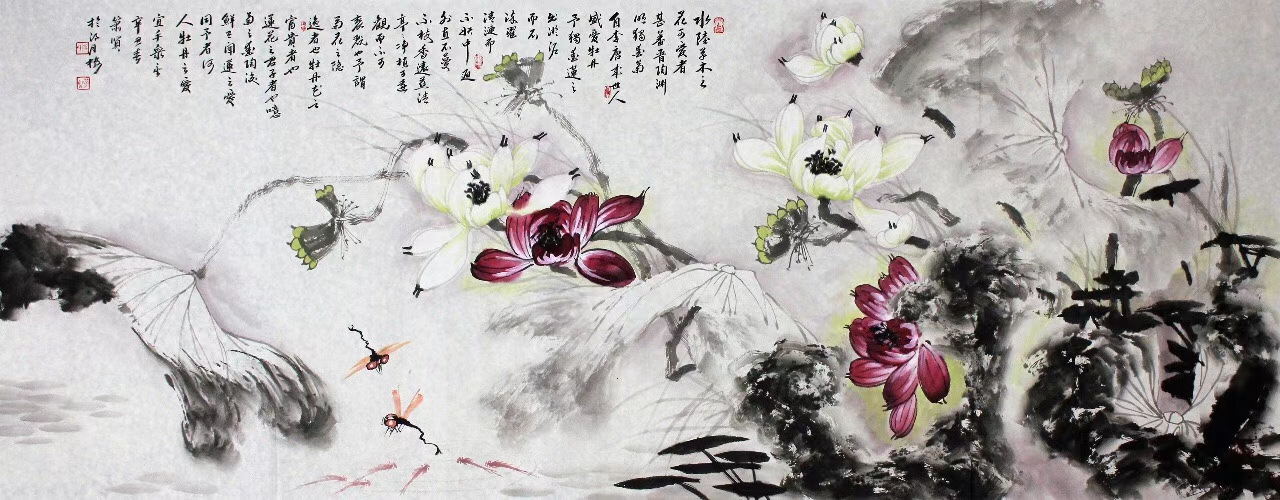 水陸草木之
花可愛者
甚蕃晋陶渊
明獨愛菊
自李唐来世人
盛愛牡丹
予獨愛蓮之
出淤泥
而不
染濯
清涟而
不妖中通
外直不蔓
不枝香遠益清
亭亭净植可遠
觀而不可
褻玩也予謂
菊花之隐
逸者也牡丹花之
富貴者也
蓮花之君子者也噫
菊之愛陶後
鮮有聞蓮之愛
同予者何
人牡丹之愛
宜乎衆
辛丑春
榮賢
於江月楼